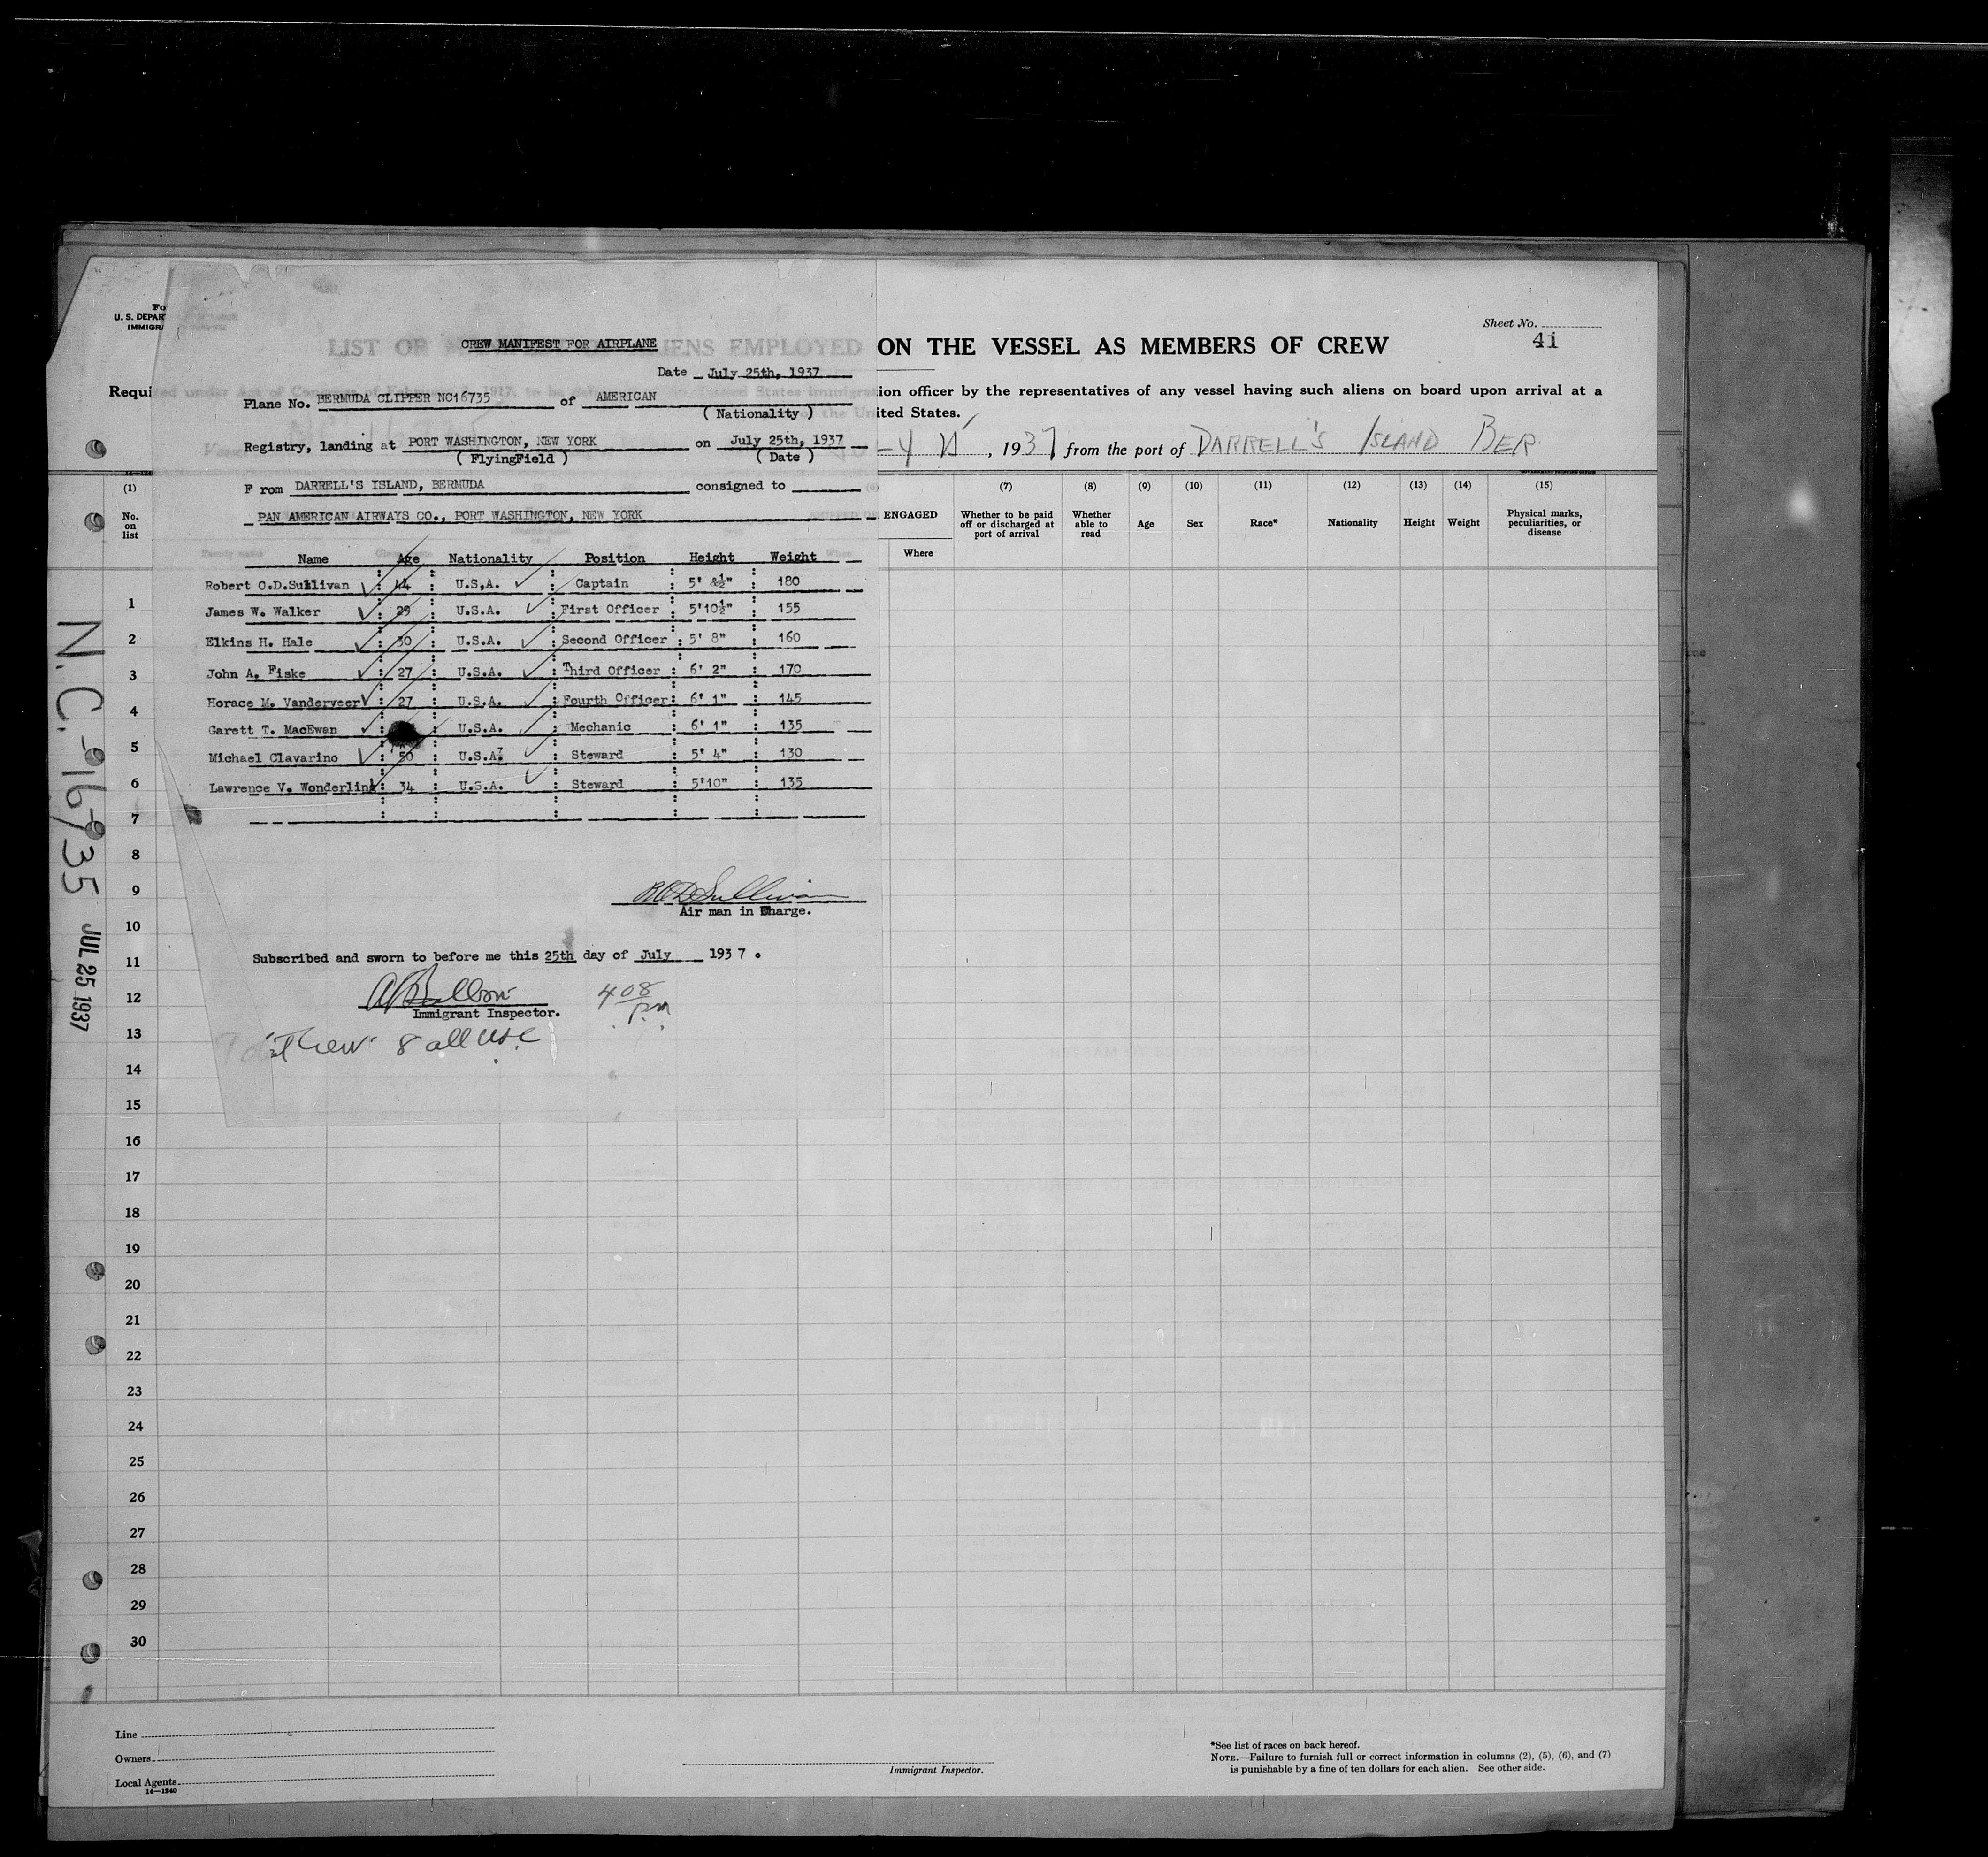 Fo
U. S. DEPAR
IMMIGRA
Sheet No.
41
LIST OF ALIENS EMPLOYED ON THE VESSEL AS MEMBERS OF CREW
CREW MANIFEST FOR AIRPLANE
Date July 25th, 1937
Requi
ion officer by the representatives of any vessel having such aliens on board upon arrival at a
ited States.
Plane No. BERMUDA CLIPPER NC16735 of AMERICAN
( Nationality )
Registry, landing at PORT WASHINGTON, NEW YORK on July 25th, 1937
( FlyingField ) ( Date )
, 1937 from the port of DARRELL'S ISLAND BER.
F rom DARRELL'S ISLAND, BERMUDA consigned to
PAN AMERICAN AIRWAYS CO., PORT WASHINGTON, NEW YORK
(1) (7) (8) (9) (10) (11) (12) (13) (14) (15)
No. on list
ENGAGED
Where
Whether to be paid off or discharged at port of arrival
Whether able to read
Age
Sex
Race*
Nationality
Height
Weight
Physical marks, peculiarities, or disease
Name Age Nationality Position Height Weight
Robert O.D.Sullivan : 44 : U.S.A. : Captain : 5' 8½" : 180
James W. Walker : 29 : U.S.A. : First Officer : 5'10½" : 155
Elkins H. Hale : 30 : U.S.A. : Second Officer : 5' 8" : 160
John A. Fiske : 27 : U.S.A. : Third Officer : 6' 2" : 170
Horace M. Vanderveer : 27 : U.S.A. : Fourth Officer : 6' 1" : 145
Garett T. MacEwan : U.S.A. : Mechanic : 6' 1" : 135
Michael Clavarino : 50 : U.S.A. : Steward : 5' 4" : 130
Lawrence V. Wonderling : 34 : U.S.A. : Steward : 5'10" : 135
R.O.D.Sullivan
Air man in Charge.
Subscribed and sworn to before me this 25th day of July 1937.
Immigrant Inspector.
4 08 pm
Crew 8 all USC
N.C.-16735
JUL 25 1937
1
2
3
4
5
6
7
8
9
10
11
12
13
14
15
16
17
18
19
20
21
22
23
24
25
26
27
28
29
30
Line
Owners
Local Agents
14—1240
Immigrant Inspector.
*See list of races on back hereof.
NOTE.—Failure to furnish full or correct information in columns (2), (5), (6), and (7)
is punishable by a fine of ten dollars for each alien. See other side.